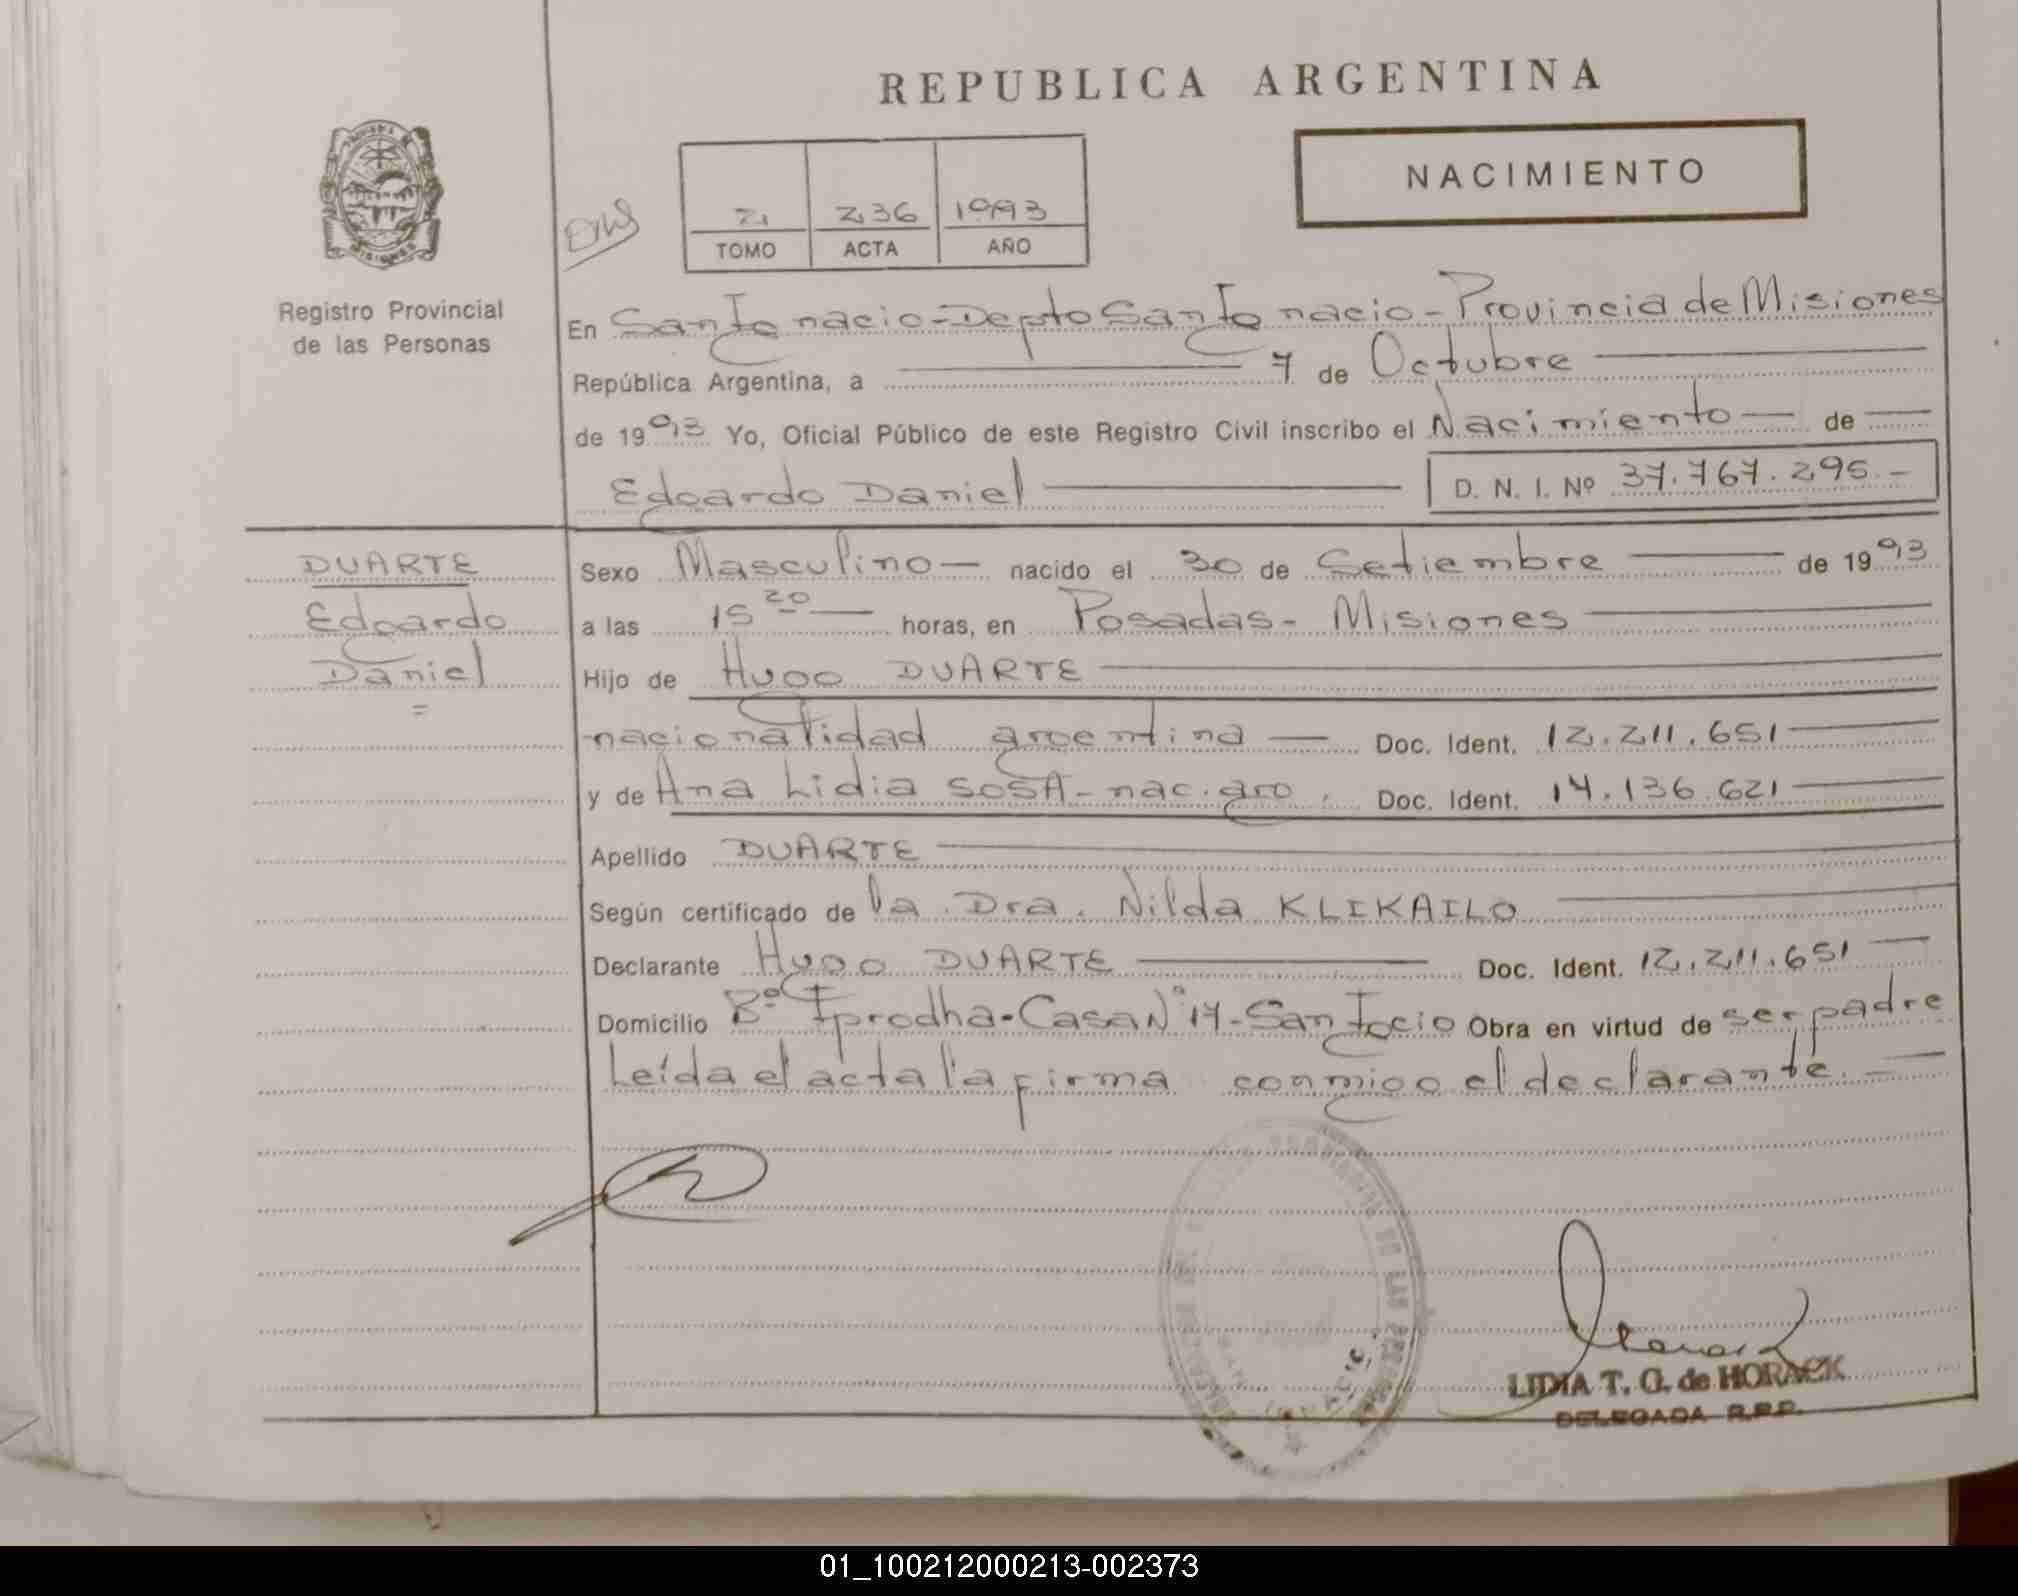 REPUBLICA ARGENTINA
NACIMIENTO
2 236 1993
TOMO ACTA AÑO
Registro Provincial
de las Personas
En San Ignacio - Depto San Ignacio - Provincia de Misiones
República Argentina, a 7 de Octubre
de 1993 Yo, Oficial Público de este Registro Civil inscribo el Nacimiento de
Edgardo Daniel D. N. I. Nº 37.767.295.-
DUARTE
Edgardo
Daniel
Sexo Masculino nacido el 30 de Setiembre de 1993
a las 15 20 horas, en Posadas - Misiones
Hijo de Hugo DUARTE
nacionalidad argentina Doc. Ident. 12.211.651
y de Ana Lidia SOSA - nac. arg. Doc. Ident. 14.136.621
Apellido DUARTE
Según certificado de la Dra. Nilda KLIKAILO
Declarante Hugo DUARTE Doc. Ident. 12.211.651
Domicilio Bº Iprodha - Casa Nº 17 - San Igcio Obra en virtud de ser padre
Leída el acta la firma conmigo el declarante.
LIDIA T. G. de HORACK
DELEGADA R.P.P.
01_100212000213-002373